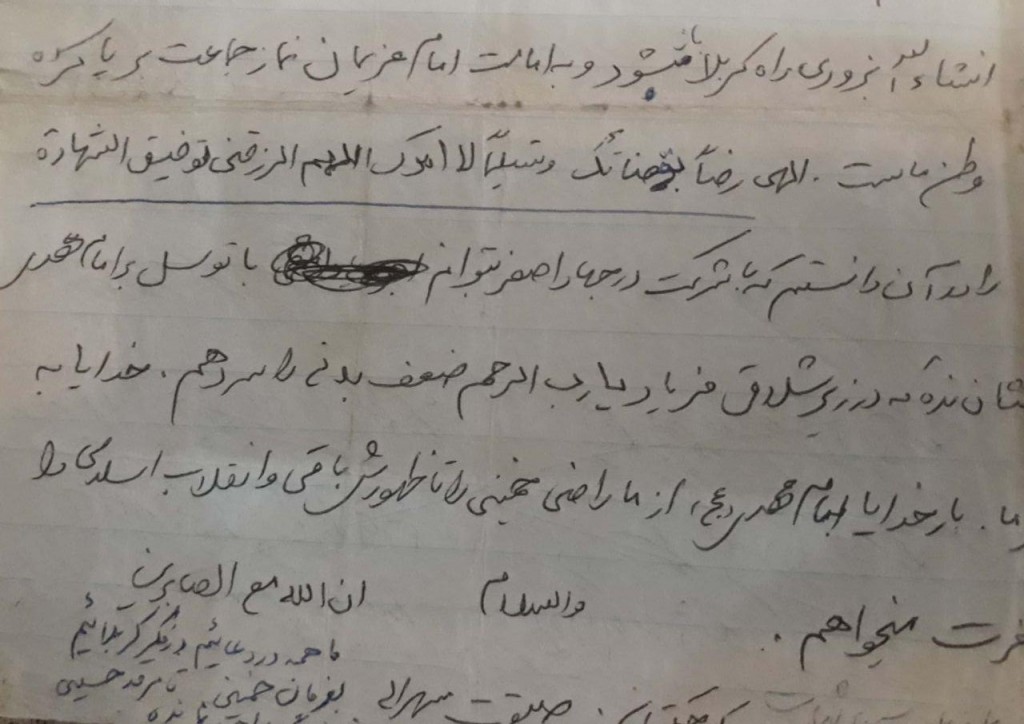 انشاءالله بزودی راه کربلا باز میشود و به امامت امام عزیزمان نماز جماعت بر پا کرده
وطن ماست . الهی رضاً بقضائک وتسلیماً لا امرک اللهم الرزقنی توفیق الشهادة
را در آن دانستم که با شرکت در جهاد اصغر بتوانم با توسل بر امام مهدی
نشان نده که در زیر شلاق فریاد یا رب الرحم ضعف بدنی را سر دهم . خدایا به
ما . بار خدایا امام مهدی (عج) از ما راضی خمینی را تا ظهورش باقی و انقلاب اسلامی را
میخواهم .
والسلام ان الله مع الصابرین
ما همه در دعائیم در فکر کربلائیم
بفرمان خمینی تا مرقد حسینی